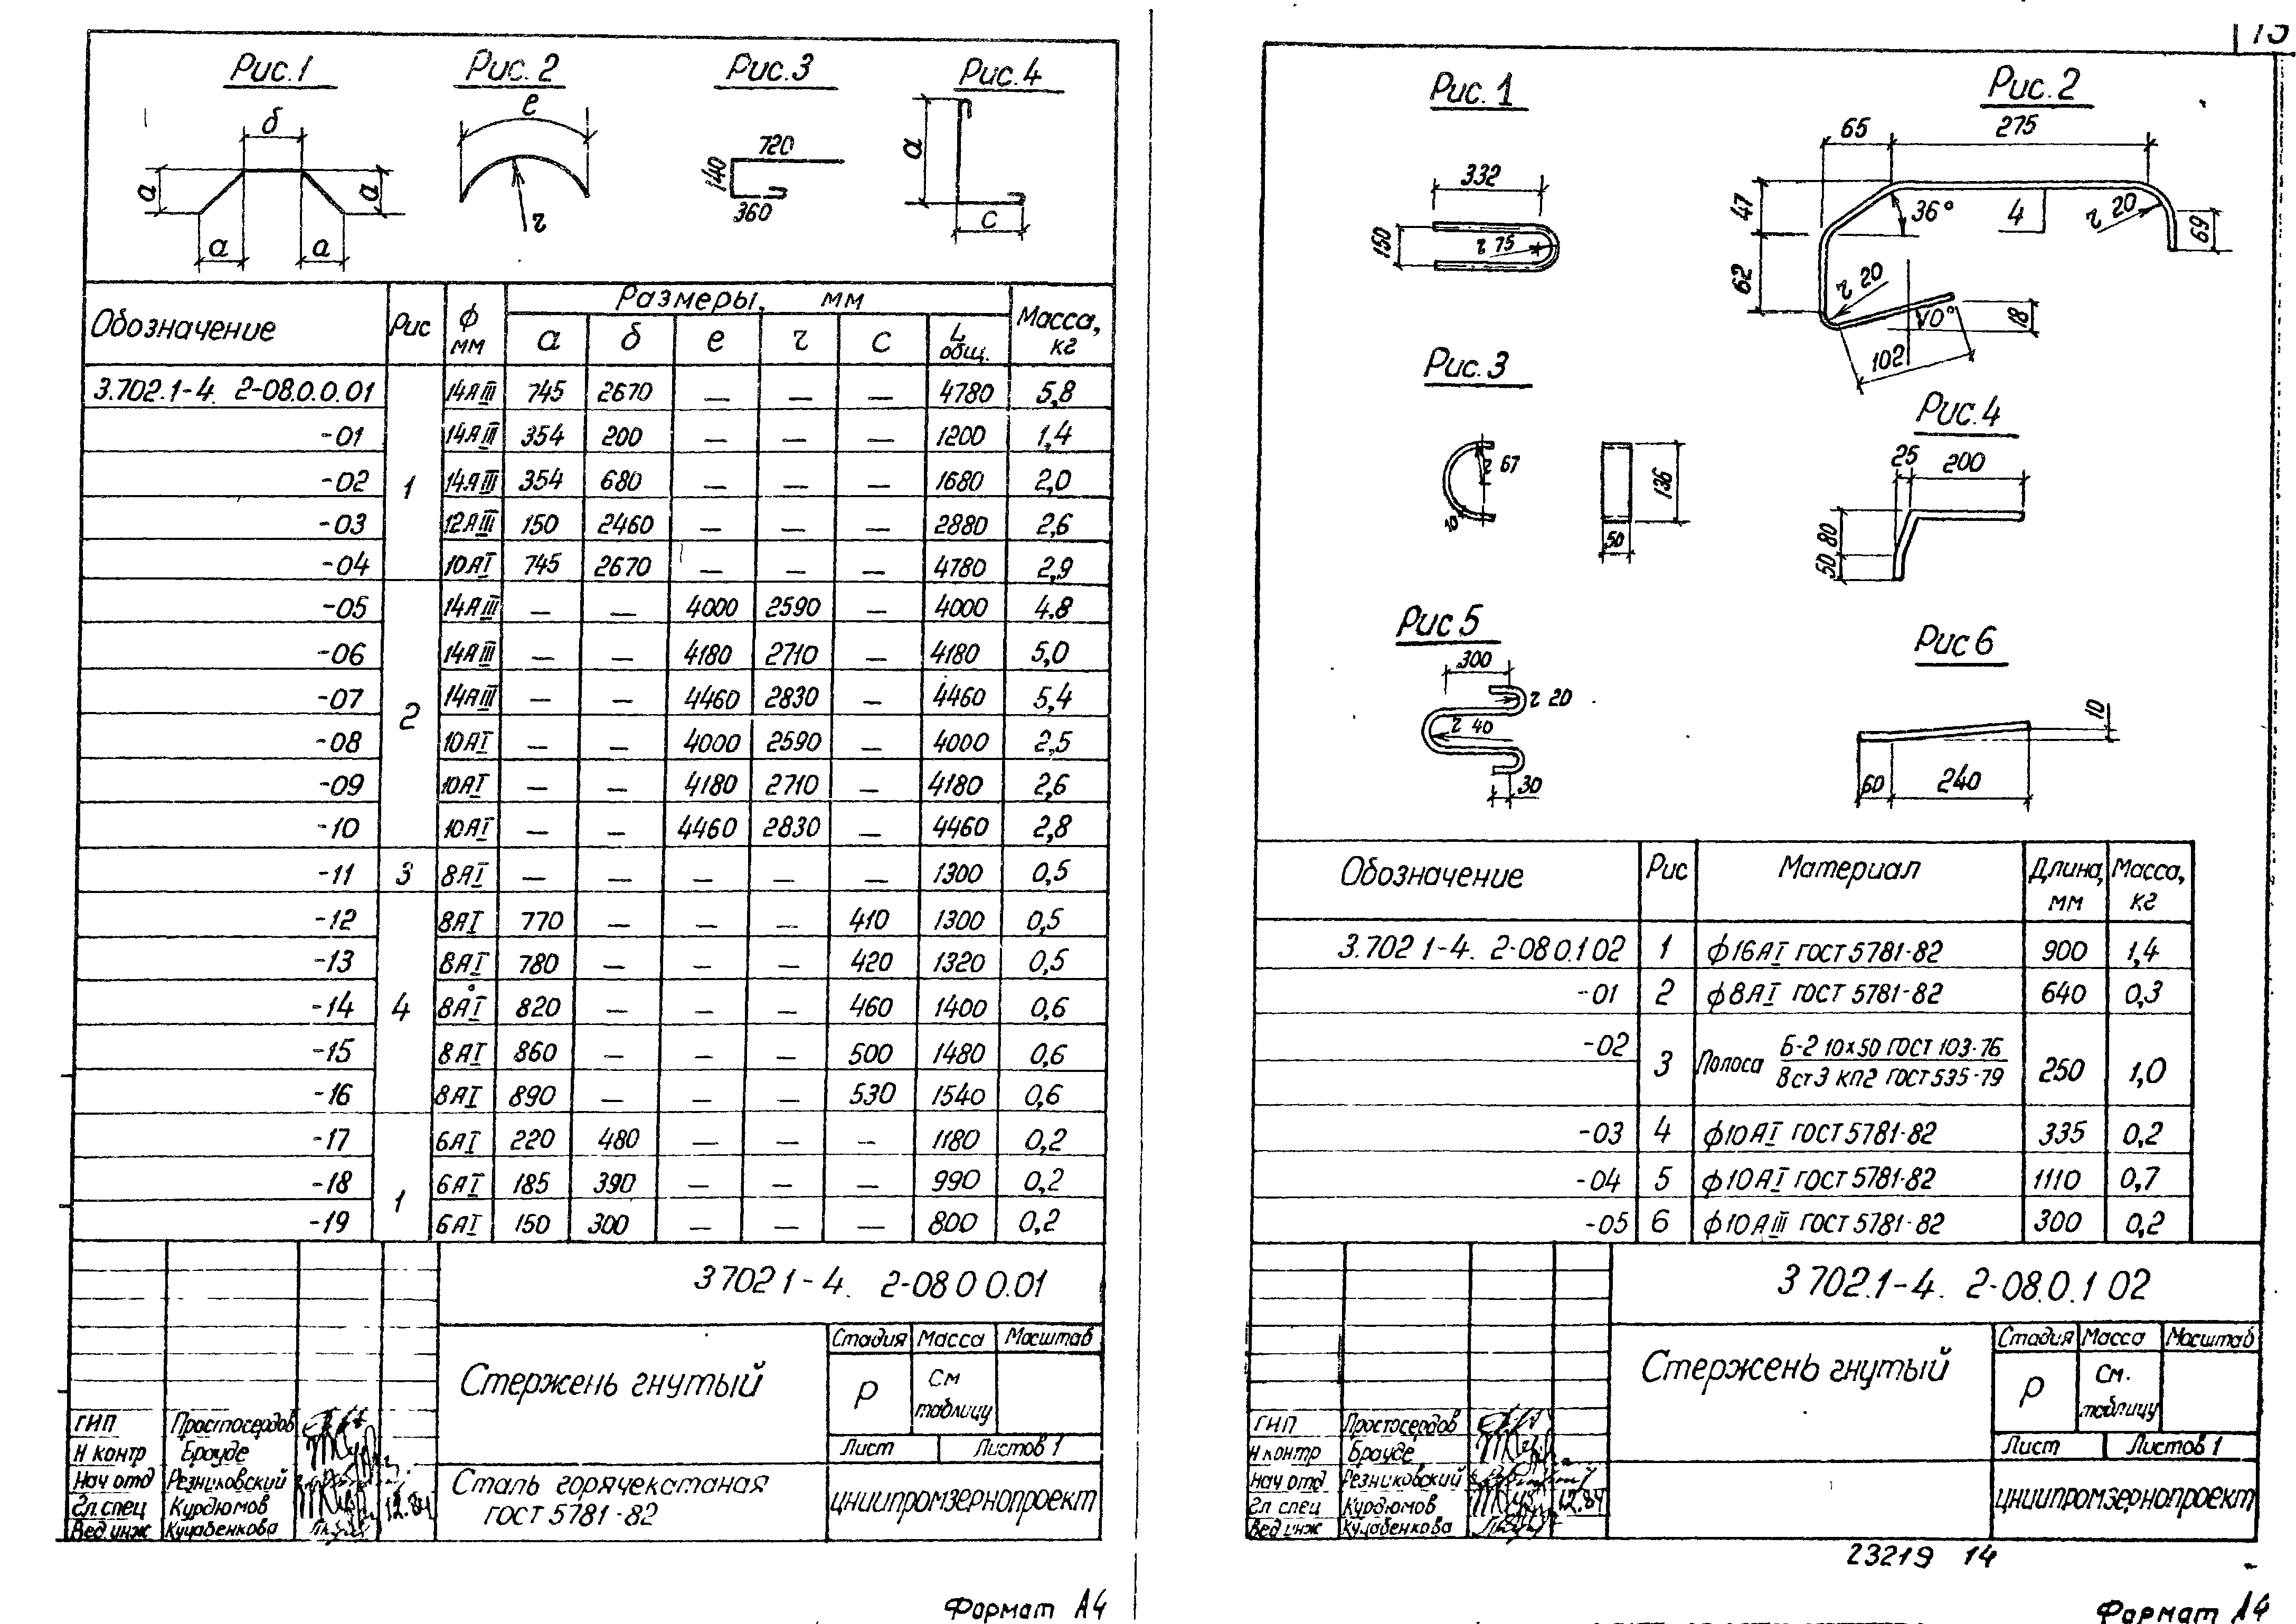 Рис.1 Рис.2 Рис.3 Рис.4
б е 720 140 360 а с
а а а а r
Обозначение Рис ф мм Размеры, мм Масса, кг
а б е r с L общ.
3.702.1-4. 2-08.0.0.01 1 14АIII 745 2670 — — — 4780 5,8
-01 14АIII 354 200 — — — 1200 1,4
-02 14АIII 354 680 — — — 1680 2,0
-03 12АIII 150 2460 — — — 2880 2,6
-04 10АI 745 2670 — — — 4780 2,9
-05 2 14АIII — — 4000 2590 — 4000 4.8
-06 14АIII — — 4180 2710 — 4180 5,0
-07 14АIII — — 4460 2830 — 4460 5,4
-08 10АI — — 4000 2590 — 4000 2,5
-09 10АI — — 4180 2710 — 4180 2,6
-10 10АI — — 4460 2830 — 4460 2,8
-11 3 8АI — — — — — 1300 0,5
-12 4 8АI 770 — — — 410 1300 0,5
-13 8АI 780 — — — 420 1320 0,5
-14 8АI 820 — — — 460 1400 0,6
-15 8АI 860 — — — 500 1480 0,6
-16 8АI 890 — — — 530 1540 0,6
-17 1 6АI 220 480 — — — 1180 0,2
-18 6АI 185 390 — — — 990 0,2
-19 6АI 150 300 — — — 800 0,2
3 702 1-4. 2-08 0 0.01
Стержень гнутый
Стадия Масса Масштаб
Р См таблицу
Лист Листов 1
ГИП Простосердов
Н контр Брауде
Нач отд Резниковский
Гл. спец Курдюмов 12.84
Вед инж Кучабенкова
Сталь горячекатаная
ГОСТ 5781-82
ЦНИИПРОМЗЕРНОПРОЕКТ
Формат А4
Рис. 1 Рис. 2
332 150 r 75
65 275 47 62 36° 4 r 20 69 r 20 10° 18 102
Рис. 3 Рис. 4
r 67 10 136 50
25 200 80 50
Рис 5 Рис 6
300 r 20 r 40 30
10 60 240
Обозначение Рис Материал Длина, мм Масса, кг
3.702 1-4. 2-08 0.1 02 1 ф16АI ГОСТ 5781-82 900 1,4
-01 2 ф8АI ГОСТ 5781-82 640 0,3
-02 3 Полоса Б-2 10х50 ГОСТ 103-76 250 1,0
Вст3 кп2 ГОСТ 535-79
-03 4 ф10АI ГОСТ 5781-82 335 0,2
-04 5 ф10АI ГОСТ 5781-82 1110 0,7
-05 6 ф10АIII ГОСТ 5781-82 300 0,2
3 702.1-4. 2-08.0.1 02
Стержень гнутый
Стадия Масса Масштаб
Р См. таблицу
Лист Листов 1
ГИП Простосердов
Н контр Брауде
Нач отд Резниковский
Гл спец Курдюмов 12.84
Вед инж Кучабенкова
ЦНИИПРОМЗЕРНОПРОЕКТ
23219 14
Формат А4